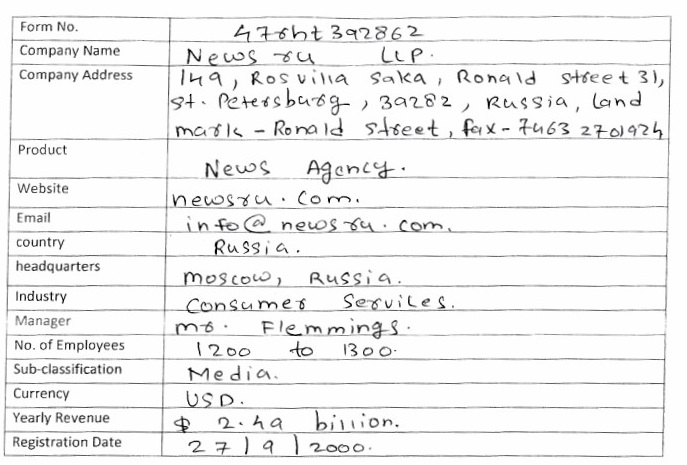 Form No. 47rht392862
Company Name News ru LLP.
Company Address 149, Rosvilla saka, Ronald street 31,
st. Petersburg, 39282, Russia, land
mark - Ronald street, fax - 7463 2701924
Product News Agency.
Website newsru.com.
Email info@newsru.com.
country Russia.
headquarters moscow, Russia.
Industry Consumer Services.
Manager mr. Flemmings.
No. of Employees 1200 to 1300.
Sub-classification Media.
Currency USD.
Yearly Revenue $ 2.49 billion.
Registration Date 27/9/2000.